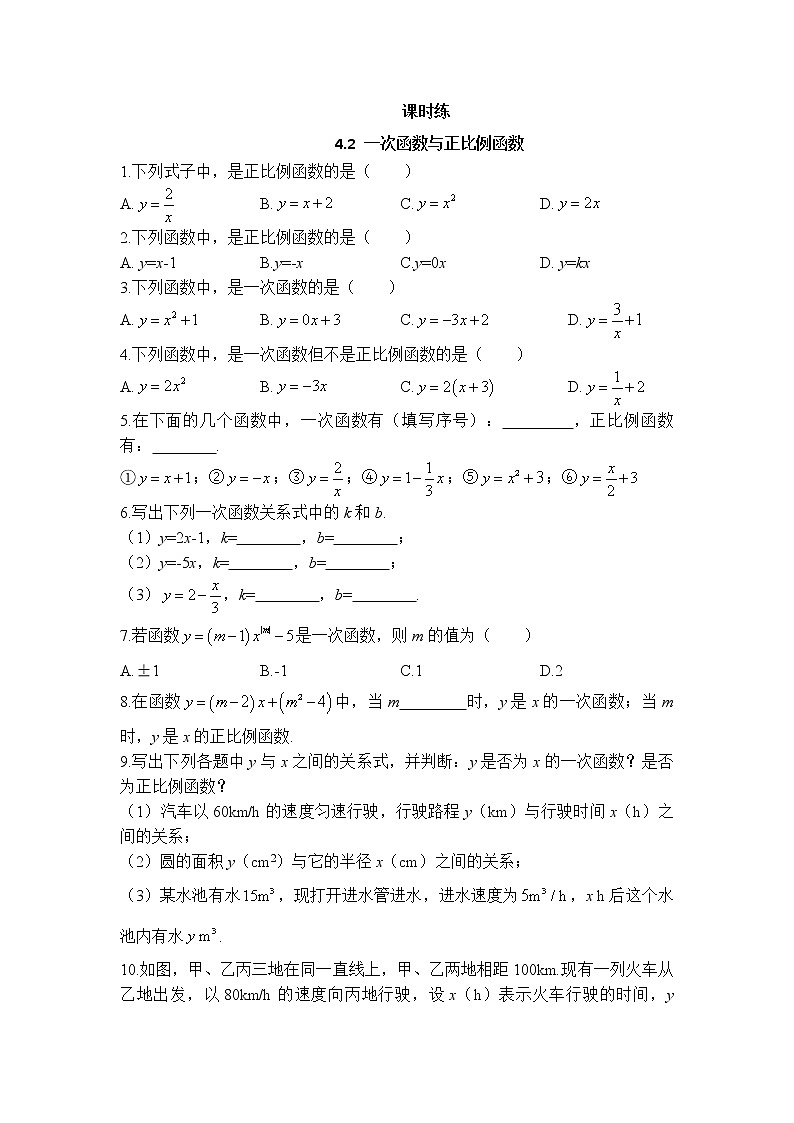 课时练
4.2 一次函数与正比例函数
1.下列式子中，是正比例函数的是（　　）
A. y=2/x　B. y=x+2　C. y=x²　D. y=2x
2.下列函数中，是正比例函数的是（　　）
A. y=x-1　B.y=-x　C.y=0x　D. y=kx
3.下列函数中，是一次函数的是（　　）
A. y=x²+1　B. y=0x+3　C. y=-3x+2　D. y=3/x+1
4.下列函数中，是一次函数但不是正比例函数的是（　　）
A. y=2x²　B. y=-3x　C. y=2(x+3)　D. y=1/x+2
5.在下面的几个函数中，一次函数有（填写序号）：________，正比例函数
有：_______.
①y=x+1；②y=-x；③y=2/x；④y=1-1/3x；⑤y=x²+3；⑥y=x/2+3
6.写出下列一次函数关系式中的 k 和 b.
（1）y=2x-1，k=_______，b=_______；
（2）y=-5x，k=_______，b=_______；
（3）y=2-x/3，k=_______，b=_______.
7.若函数 y=(m-1)x^|m|-5是一次函数，则 m 的值为（　　）
A.±1　B.-1　C.1　D.2
8.在函数 y=(m-2)x+(m²-4)中，当 m________时，y 是 x 的一次函数；当 m
时，y 是 x 的正比例函数.
9.写出下列各题中 y 与 x 之间的关系式，并判断：y 是否为 x 的一次函数？是否
为正比例函数？
（1）汽车以 60km/h 的速度匀速行驶，行驶路程 y（km）与行驶时间 x（h）之
间的关系；
（2）圆的面积 y（cm²）与它的半径 x（cm）之间的关系；
（3）某水池有水15m³，现打开进水管进水，进水速度为5m³/h，x h 后这个水
池内有水 y m³.
10.如图，甲、乙丙三地在同一直线上，甲、乙两地相距 100km.现有一列火车从
乙地出发，以 80km/h 的速度向丙地行驶，设 x（h）表示火车行驶的时间，y